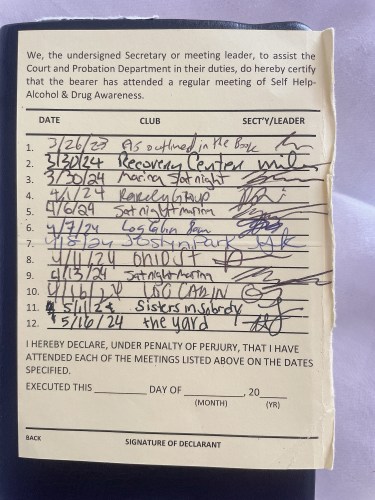 We, the undersigned Secretary or meeting leader, to assist the
Court and Probation Department in their duties, do hereby certify
that the bearer has attended a regular meeting of Self Help-
Alcohol & Drug Awareness.
DATE CLUB SECT'Y/LEADER
1. 3/26/23 As outlined in the Book
2. 3/30/24 Recovery Center
3. 3/30/24 Marina Sat night
4. 4/1/24 Group
5. 4/6/24 Sat night Marina
6. 4/7/24
7. 4/8/24 Park
8. 4/11/24
9. 4/13/24 Sat night Marina
10. 4/16/24 LOG CABIN
11. 5/11/24 Sisters in Sobriety
12. 5/16/24 the yard
I HEREBY DECLARE, UNDER PENALTY OF PERJURY, THAT I HAVE
ATTENDED EACH OF THE MEETINGS LISTED ABOVE ON THE DATES
SPECIFIED.
EXECUTED THIS __________ DAY OF __________, 20____
(MONTH) (YR)
BACK SIGNATURE OF DECLARANT